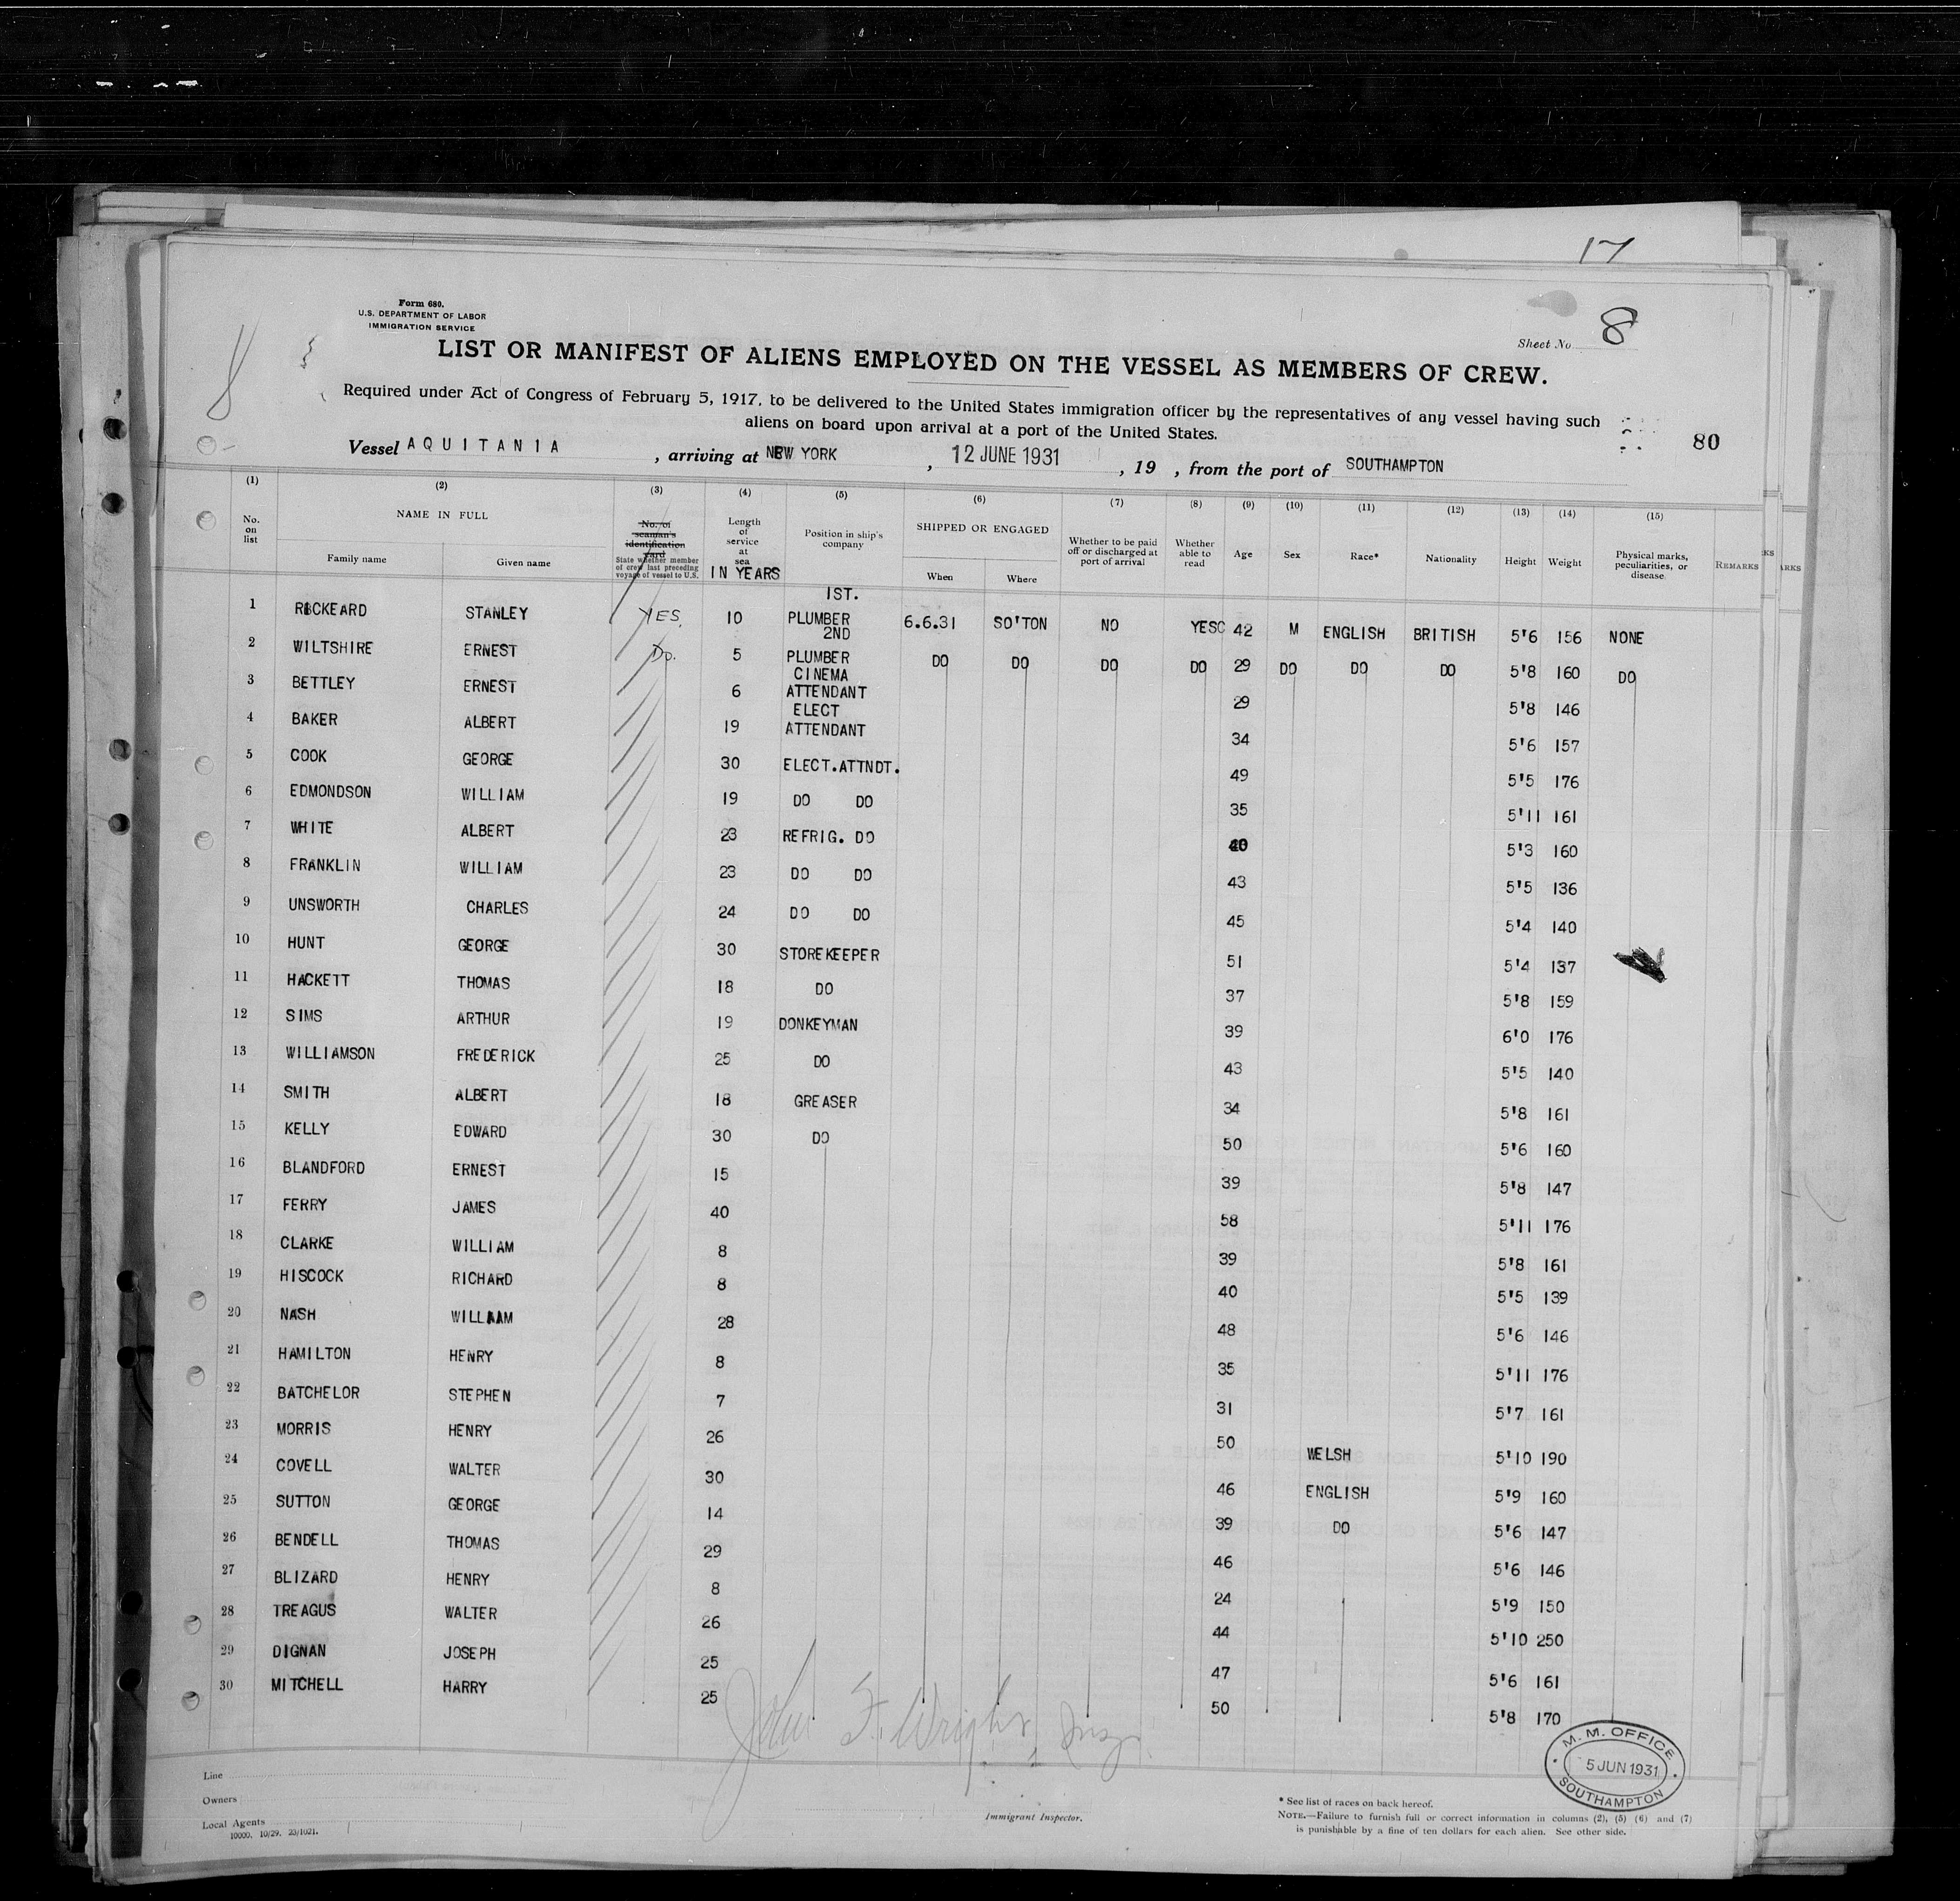 17
Form 680.
U.S. DEPARTMENT OF LABOR
IMMIGRATION SERVICE
Sheet No 8
LIST OR MANIFEST OF ALIENS EMPLOYED ON THE VESSEL AS MEMBERS OF CREW.
Required under Act of Congress of February 5, 1917, to be delivered to the United States immigration officer by the representatives of any vessel having such
aliens on board upon arrival at a port of the United States.
80
Vessel AQUITANIA , arriving at NEW YORK , 12 JUNE 1931 , 19 , from the port of SOUTHAMPTON
(1) (2) (3) (4) (5) (6) (7) (8) (9) (10) (11) (12) (13) (14) (15)
No. on list NAME IN FULL Family name Given name No. of seaman's identification card State whether member of crew last preceding voyage of vessel to U.S. Length of service at sea IN YEARS Position in ship's company SHIPPED OR ENGAGED When Where Whether to be paid off or discharged at port of arrival Whether able to read Age Sex Race* Nationality Height Weight Physical marks, peculiarities, or disease REMARKS
1 RICKEARD STANLEY YES. 10 1ST. PLUMBER 6.6.31 SO'TON NO YES 42 M ENGLISH BRITISH 5'6 156 NONE
2 WILTSHIRE ERNEST Do. 5 2ND PLUMBER DO DO DO DO 29 DO DO DO 5'8 160 DO
3 BETTLEY ERNEST 6 CINEMA ATTENDANT 29 5'8 146
4 BAKER ALBERT 19 ELECT ATTENDANT 34 5'6 157
5 COOK GEORGE 30 ELECT.ATTNDT. 49 5'5 176
6 EDMONDSON WILLIAM 19 DO DO 35 5'11 161
7 WHITE ALBERT 23 REFRIG. DO 40 5'3 160
8 FRANKLIN WILLIAM 23 DO DO 43 5'5 136
9 UNSWORTH CHARLES 24 DO DO 45 5'4 140
10 HUNT GEORGE 30 STOREKEEPER 51 5'4 137
11 HACKETT THOMAS 18 DO 37 5'8 159
12 SIMS ARTHUR 19 DONKEYMAN 39 6'0 176
13 WILLIAMSON FREDERICK 25 DO 43 5'5 140
14 SMITH ALBERT 18 GREASER 34 5'8 161
15 KELLY EDWARD 30 DO 50 5'6 160
16 BLANDFORD ERNEST 15 39 5'8 147
17 FERRY JAMES 40 58 5'11 176
18 CLARKE WILLIAM 8 39 5'8 161
19 HISCOCK RICHARD 8 40 5'5 139
20 NASH WILLIAM 28 48 5'6 146
21 HAMILTON HENRY 8 35 5'11 176
22 BATCHELOR STEPHEN 7 31 5'7 161
23 MORRIS HENRY 26 50 WELSH 5'10 190
24 COVELL WALTER 30 46 ENGLISH 5'9 160
25 SUTTON GEORGE 14 39 DO 5'6 147
26 BENDELL THOMAS 29 46 5'6 146
27 BLIZARD HENRY 8 24 5'9 150
28 TREAGUS WALTER 26 44 5'10 250
29 DIGNAN JOSEPH 25 47 5'6 161
30 MITCHELL HARRY 25 50 5'8 170
John F. Wright, Insp.
M. M. OFFICE
5 JUN 1931
SOUTHAMPTON
Line
Owners
Local Agents
10000. 10/29. 20/1021.
Immigrant Inspector.
* See list of races on back hereof.
NOTE.—Failure to furnish full or correct information in columns (2), (5) (6) and (7)
is punishable by a fine of ten dollars for each alien. See other side.